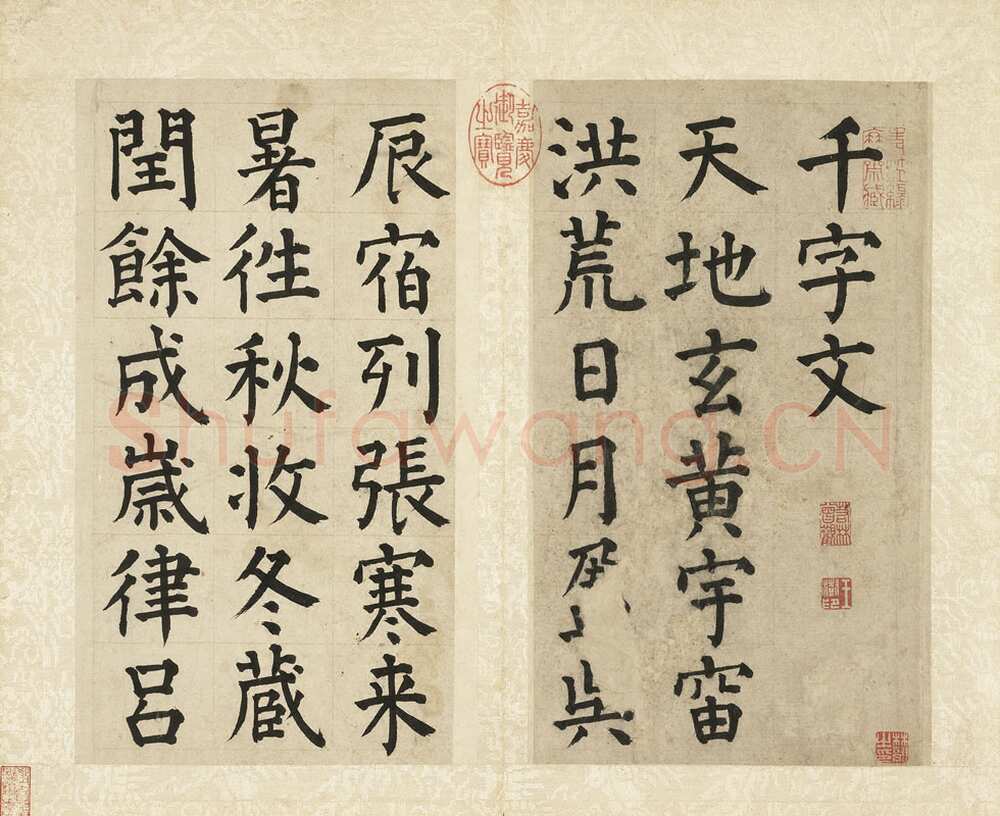 千字文
天地玄黄宇宙
洪荒日月昃
嘉慶御覽之寶
辰宿列張寒来
暑徃秋收冬蔵
閏餘成歳律呂
Shufawang.CN